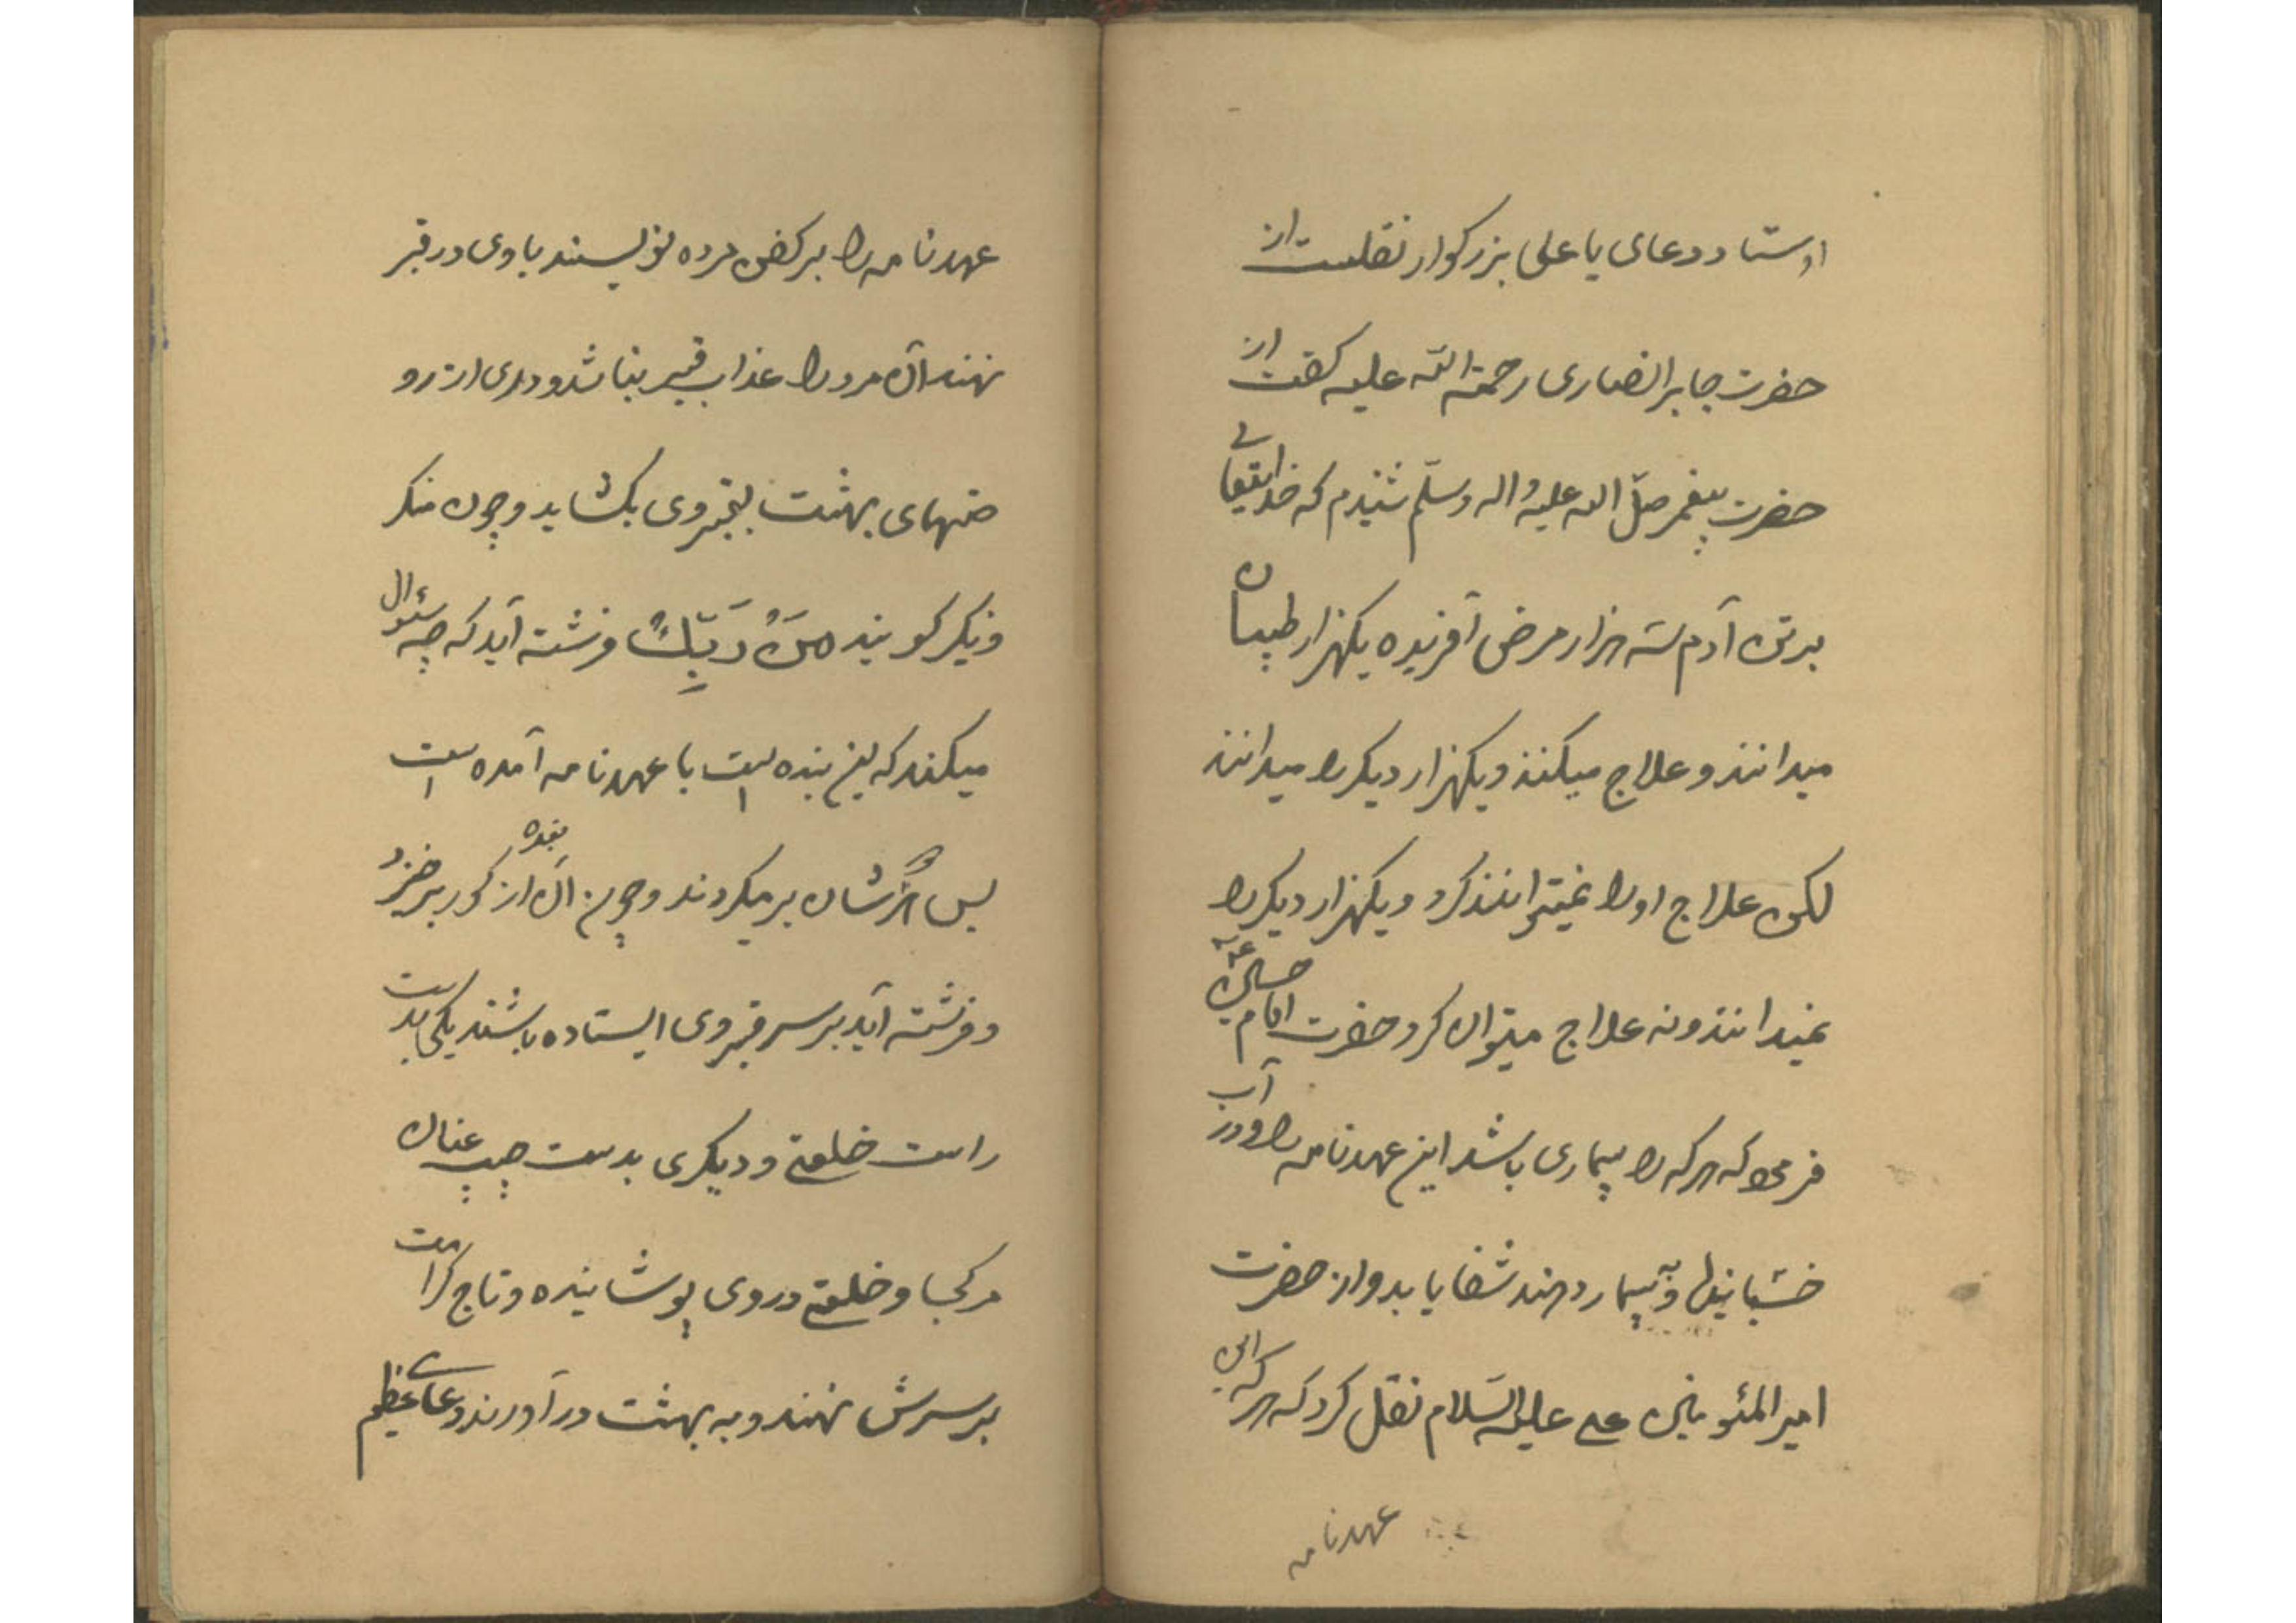 اوستاد دعای یا علی بزرکوار نقلست از
حضرت جابر انصاری رحمة الله علیه کفت از
حضرت پیغمر صلّ الله علیه و اله وسلّم شنیدم که خدایتعالی
بر تن آدم سه هزار مرض آفریده یکهزار طبیبان
میدانند و علاج میکنند ویکهزار دیکر را میدانند
لکن علاج او را نمیتوانند کرد ویکهزار دیکر را
نمیدانند ونه علاج میتوان کرد حضرت امام حسن
فرمود که هر که را بیماری باشد این عهدنامه را و در آب
و به بیمار دهند شفا یابد و از حضرت
امیر المئومنین علی علیه السّلام نقل کرد که هر که این
عهدنامه
عهدنامه را بر کفن مرده نویسند با وی در قبر
نهند آن مرد را عذاب قبر نباشد و دری از رو
ضهای بهشت بقبر وی بکشاید و چون منکر
ونکیر کویند مَنْ رَبِّكْ فرشته آید که چه سئوال
میکنند که این بنده است با عهدنامه آمده است
پس ایشان برمیکردند و چون آن بنده از کور برخیزد
دفرشته آید بر سر قبر وی ایستاده باشند یکی بدست
راست خلعتی و دیکری بدست چپ عنان
مرکب و خلعتی در وی پوشانیده و تاج کرامت
بر سرش نهند و به بهشت در آورند دعای عظیم